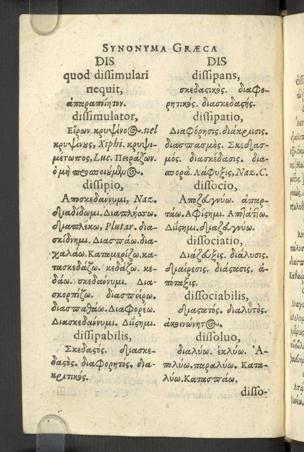 SYNONYMA GRÆCA
DIS
quod dissimulari
nequit,
ἀπαραποίητον.
dissimulator,
Εἴρων. κρυψίνοος. vel
κρυψίνους, Xiphi. κρυψι-
μέτωπος, Luc.
dissipo,
Ἀποσκεδάννυμι, Naz.
διαδίδωμι.
διαπλέκω, Plutar. δια-
σκίδνημι. Διασπάω. δια-
χαλάω. Καταμερίζω. κα-
τασκεδάζω. κεδάζω. κε-
δάω. σκεδάννυμι. Δια-
σκορπίζω. διασπείρω.
διασπαθάω. Διαφορέω.
Διασκεδάννυμι. Διΐημι.
dissipabilis,
Σκεδαςός. διασκε-
δαςός. διαφορητός. δια-
κριτικός.
DIS
dissipans,
σκεδαςικός. διαφο-
ρητικός. διασκεδαςής.
dissipatio,
Διαφόρησις. διάκρισις.
διασπασμός. Σκεδασ-
μός. διασκέδασις. δια-
φορά. Λάφυξις, Naz. C.
dissocio,
Ἀποζεύγνυμι. ἀπαρ-
τάω. Ἀφίημι.
Διΐημι. διαζεύγνυμι.
dissociatio,
Διάζευξις. διάλυσις.
διαίρεσις. διάςασις. ἀ-
dissociabilis,
διαλυτός.
ἀκοινώνητος.
dissoluo,
διαλύω. ἐκλύω. Ἀ-
πολύω. παραλύω. Κατα-
λύω. Κατασπάω.
disso-